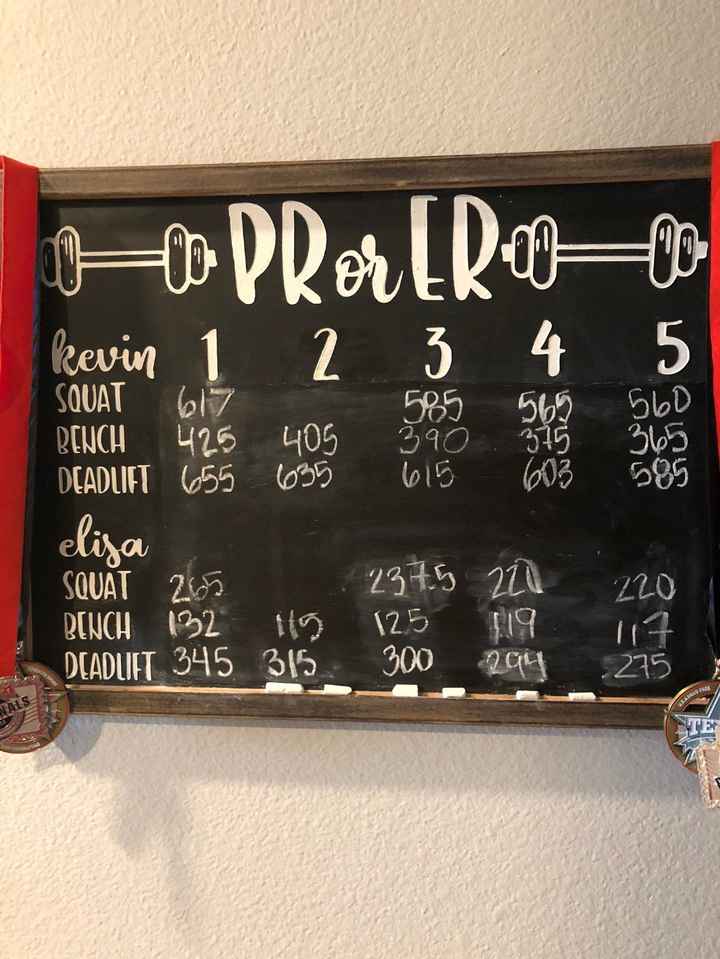 PR or ER
kevin 1 2 3 4 5
SQUAT 617 585 565 560
BENCH 425 405 390 375 365
DEADLIFT 655 635 615 603 585
elisa
SQUAT 265 237.5 220 220
BENCH 132 115 125 119 117
DEADLIFT 345 315 300 294 275
NALS
TE